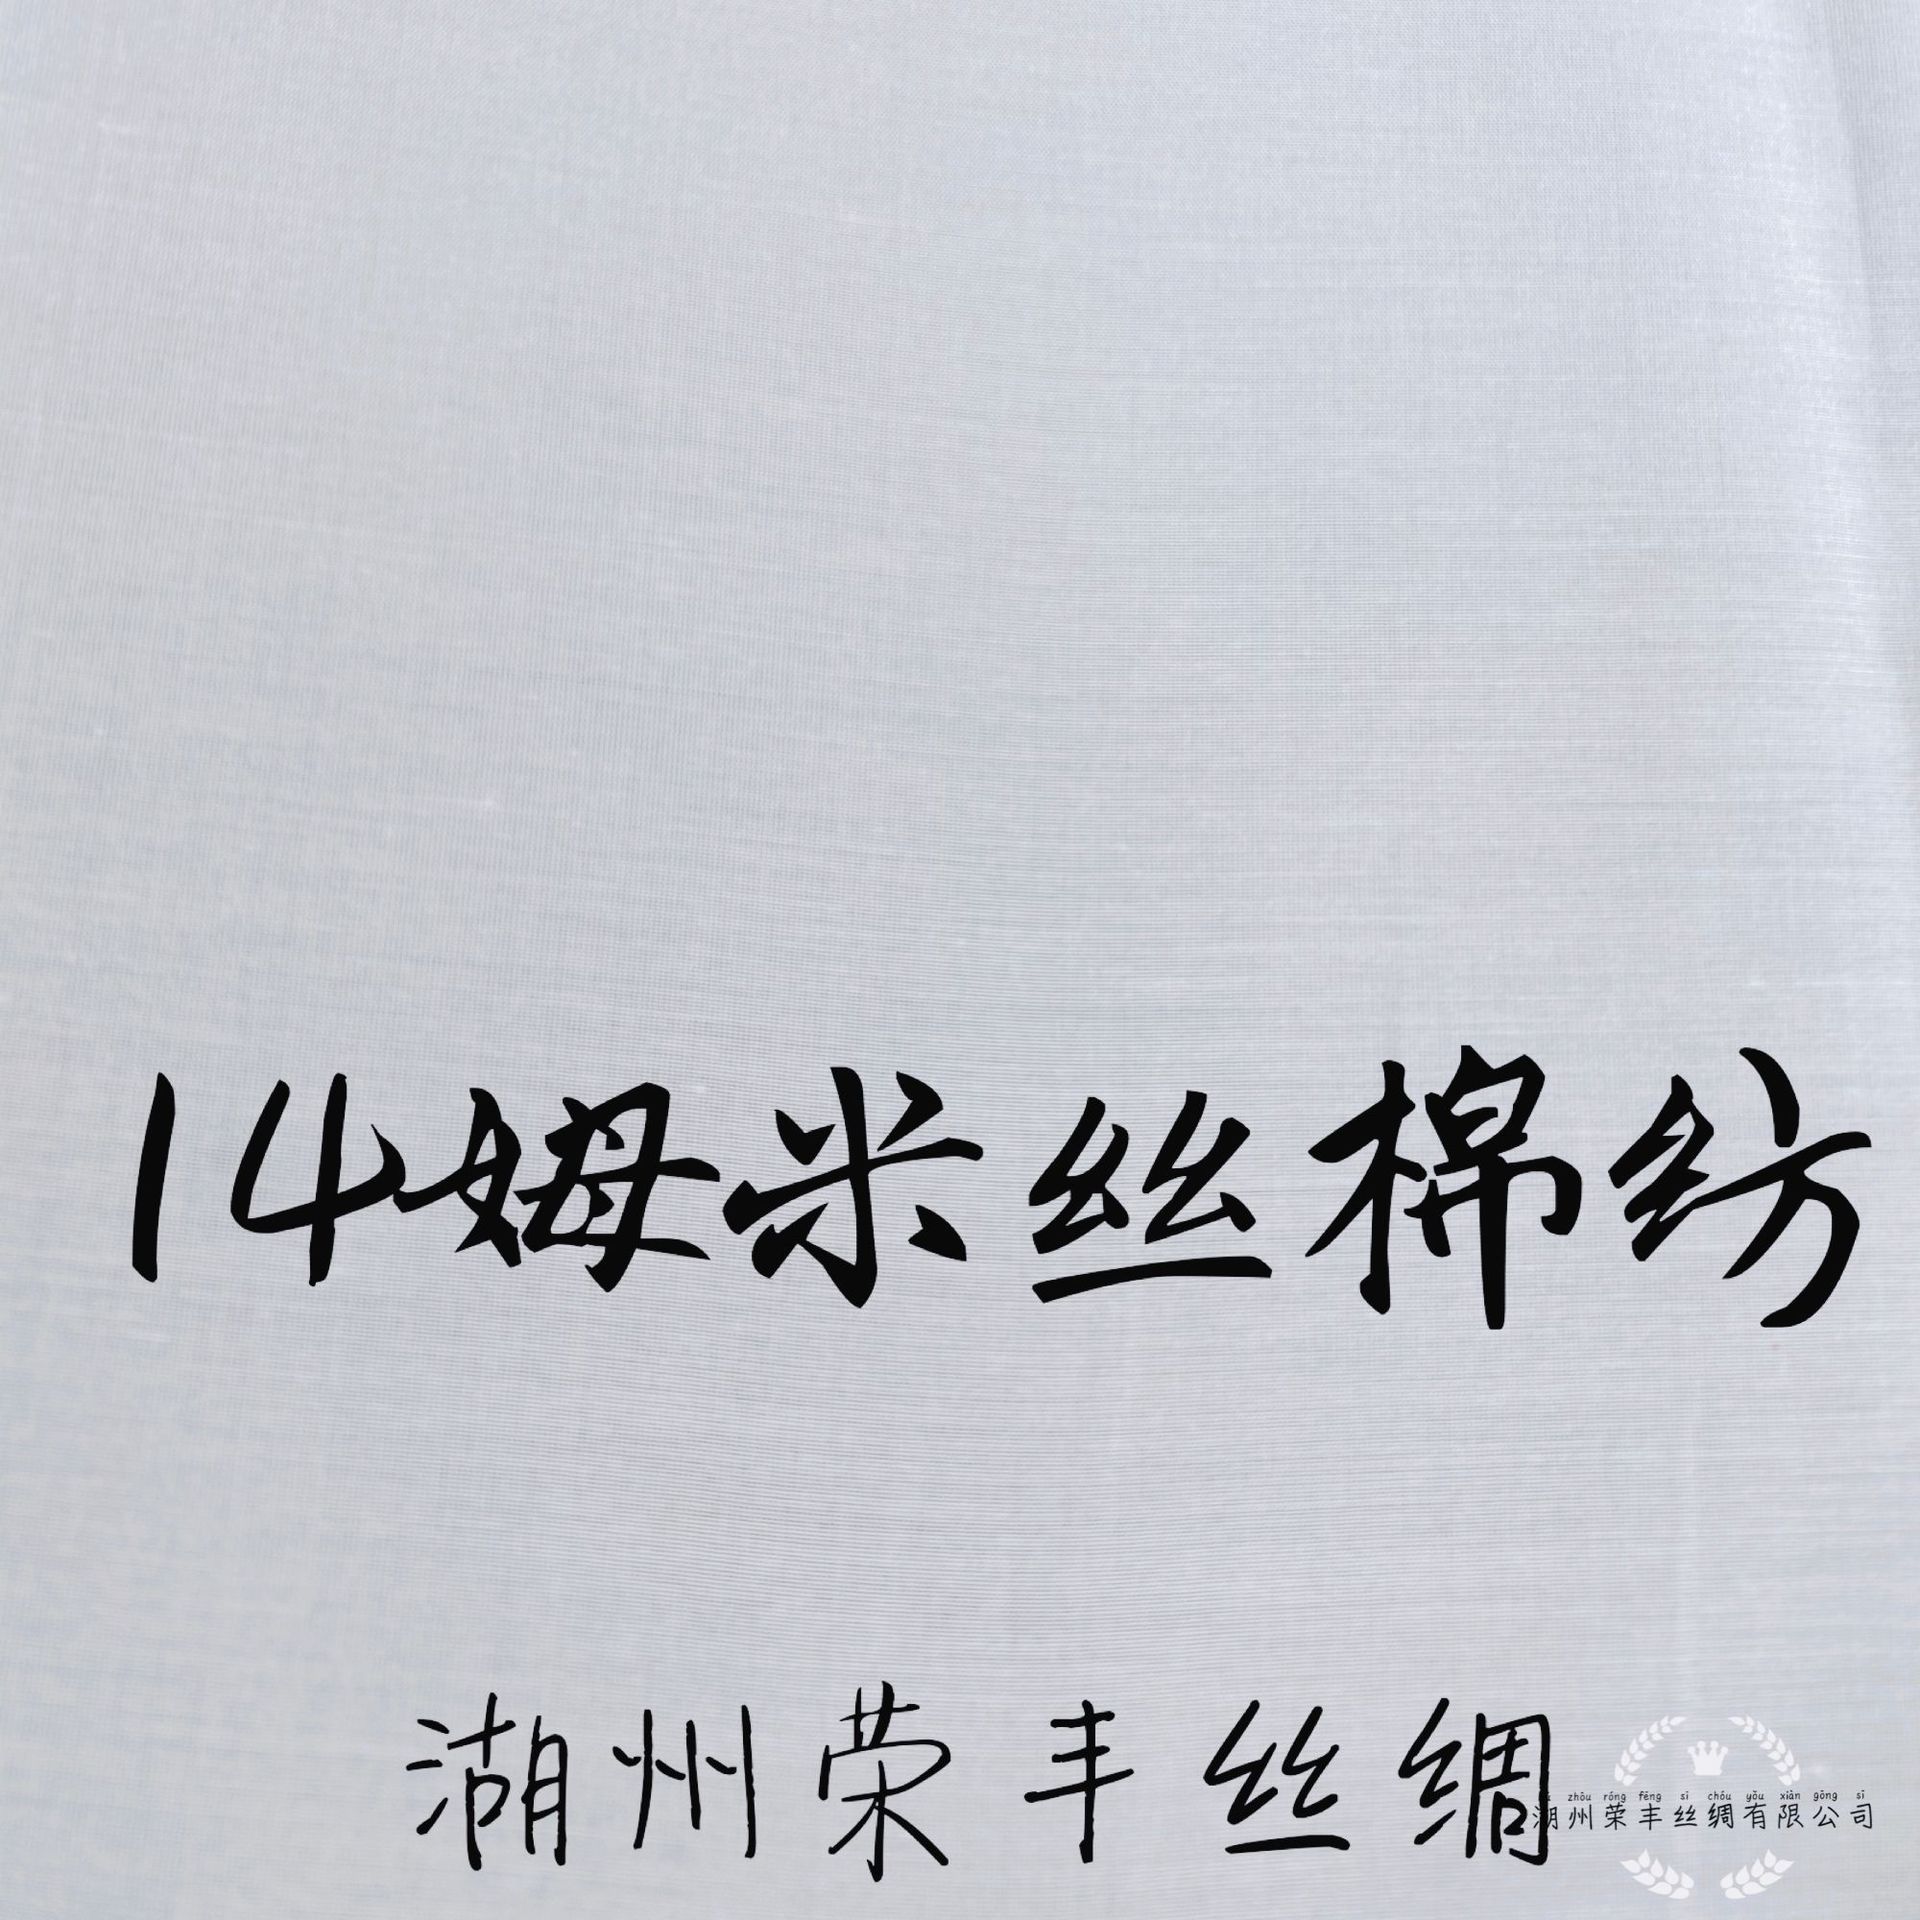 14姆米丝棉纺
湖州荣丰丝绸
zhōu róng fēng sī chóu yǒu xiàn gōng sī
湖州荣丰丝绸有限公司